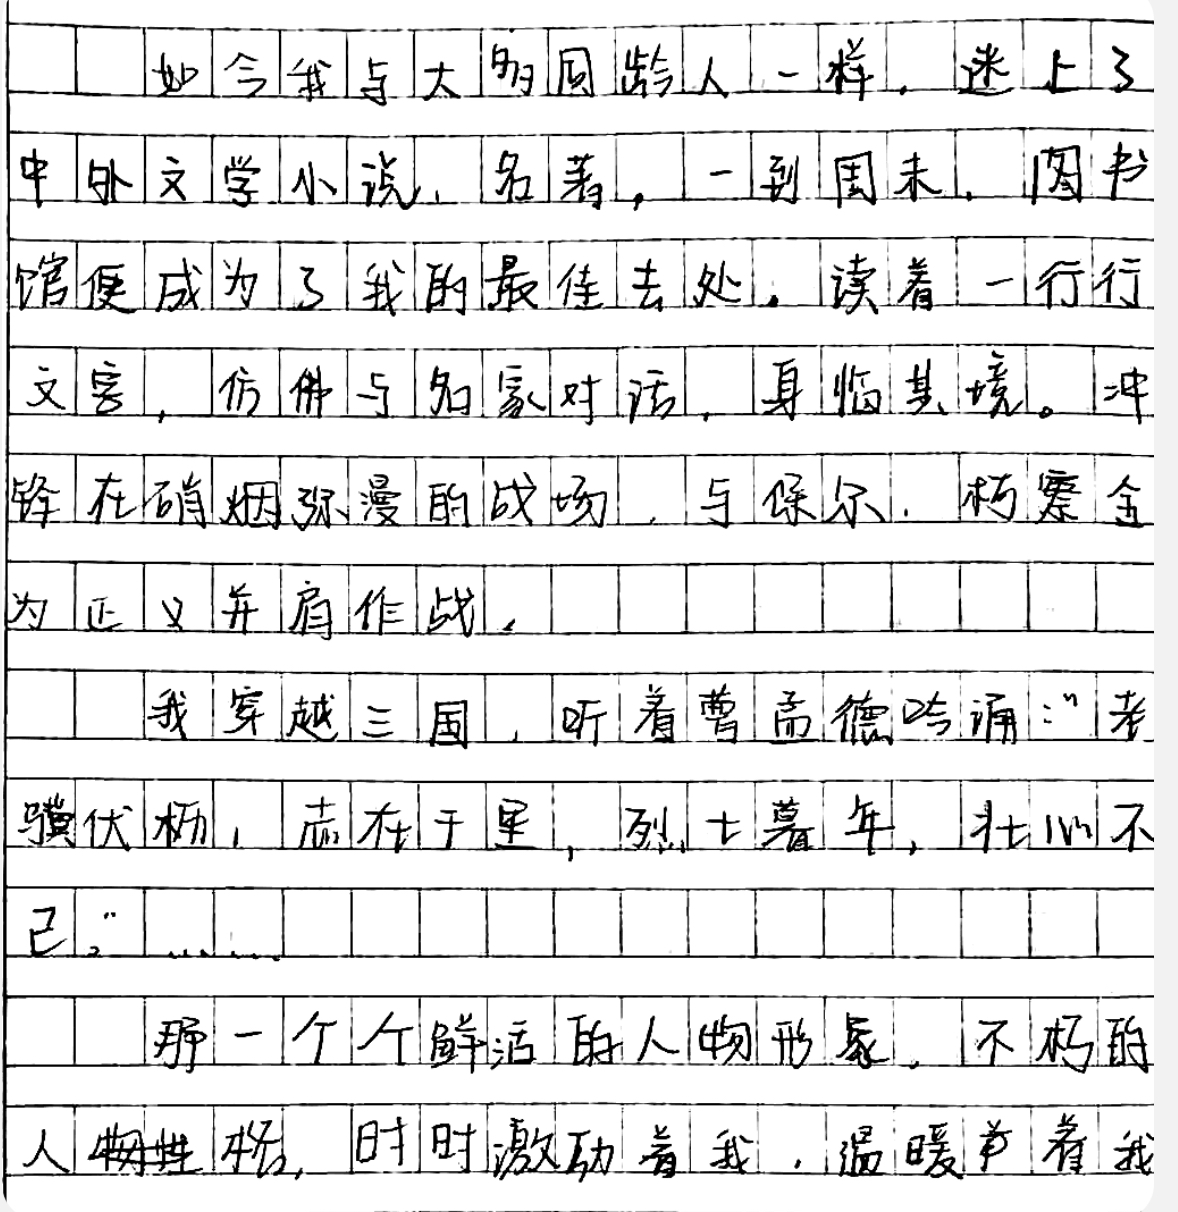 如今我与大多同龄人一样，迷上了
中外文学小说、名著，一到周末，图书
馆便成为了我的最佳去处。读着一行行
文字，仿佛与名家对话，身临其境。冲
锋在硝烟弥漫的战场，与保尔·柯察金
为正义并肩作战。
我穿越三国，听着曹孟德吟诵："老
骥伏枥，志在千里，烈士暮年，壮心不
已。"……
那一个个鲜活的人物形象，不朽的
人物性格，时时激励着我，温暖着我